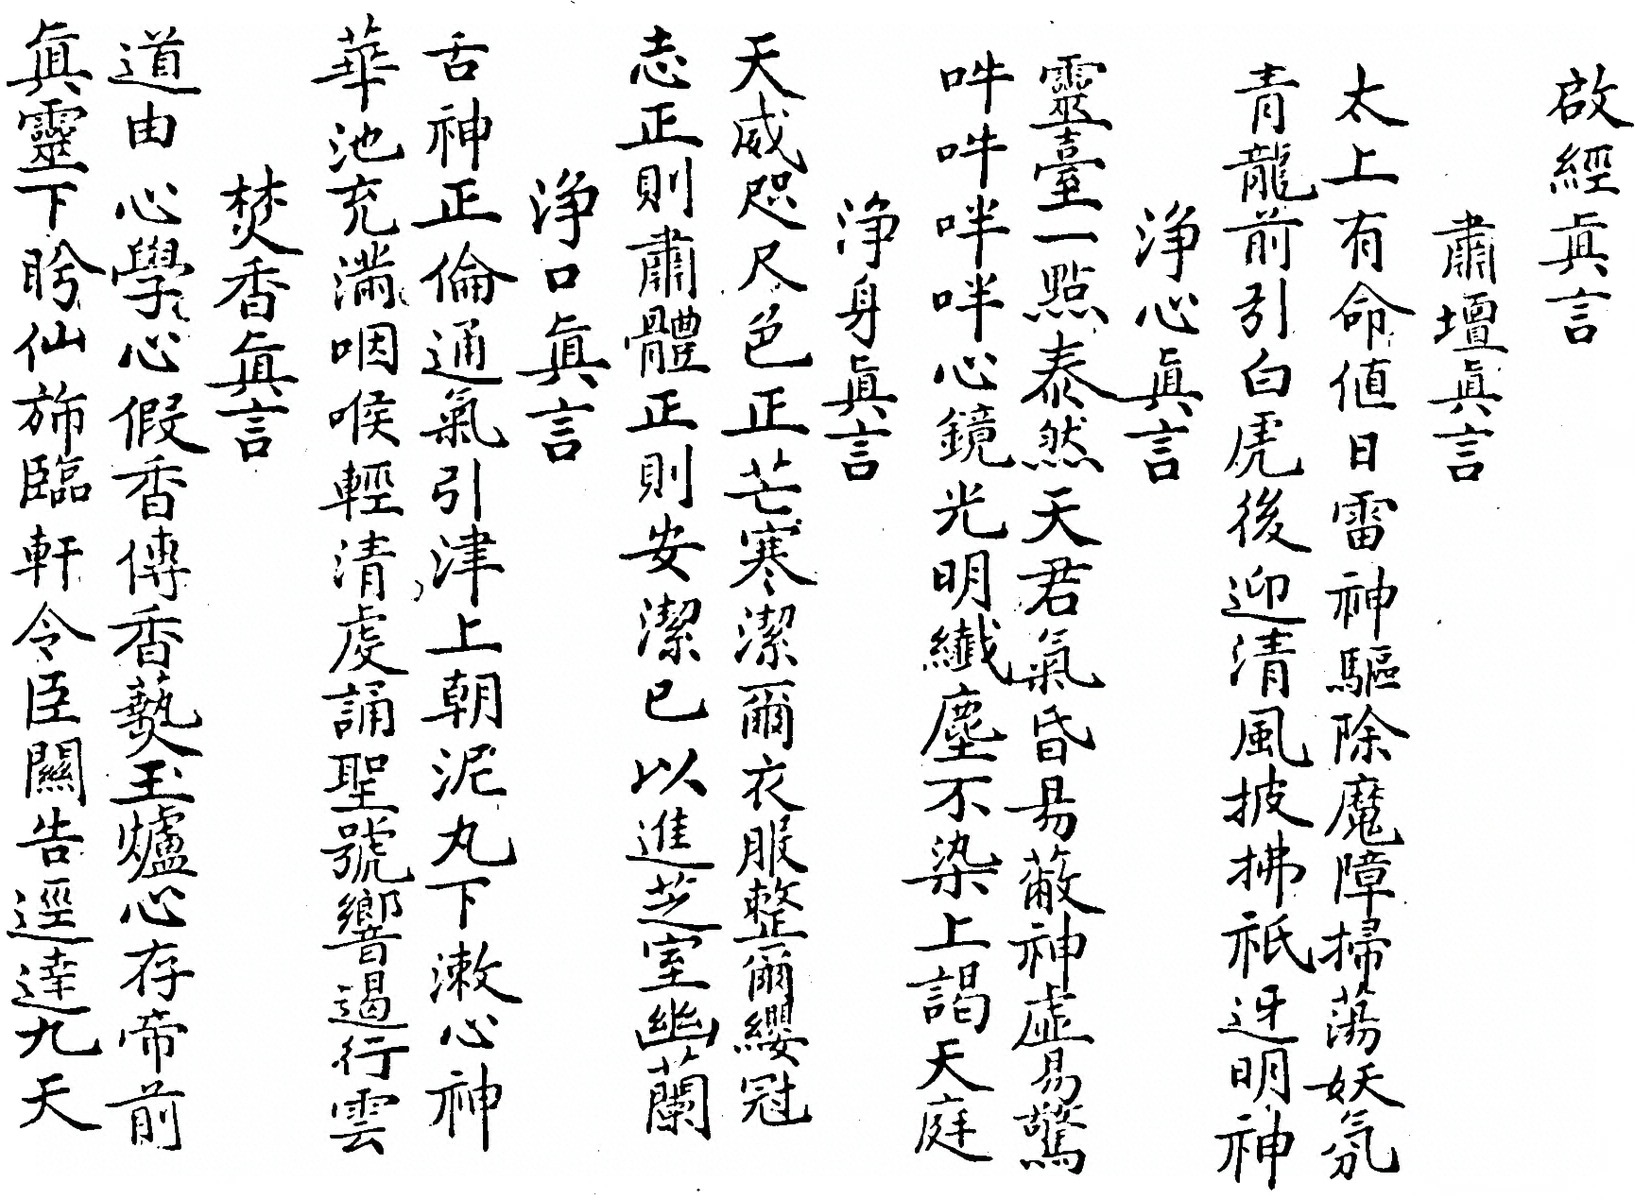 啟經眞言
肅壇眞言
太上有命値日雷神驅除魔障掃蕩妖氛
青龍前引白虎後迎清風披拂祇迓明神
淨心眞言
靈臺一點泰然天君氣昏易蔽神虛易驚
吽吽吽吽心鏡光明纖塵不染上謁天庭
淨身眞言
天威咫尺色正芒寒潔爾衣服整爾纓冠
志正則肅體正則安潔已以進芝室幽蘭
淨口眞言
舌神正倫通氣引津上朝泥丸下漱心神
華池充滿咽喉輕清虔誦聖號響遏行雲
焚香眞言
道由心學心假香傳香爇玉爐心存帝前
眞靈下盼仙斾臨軒令臣關告逕達九天